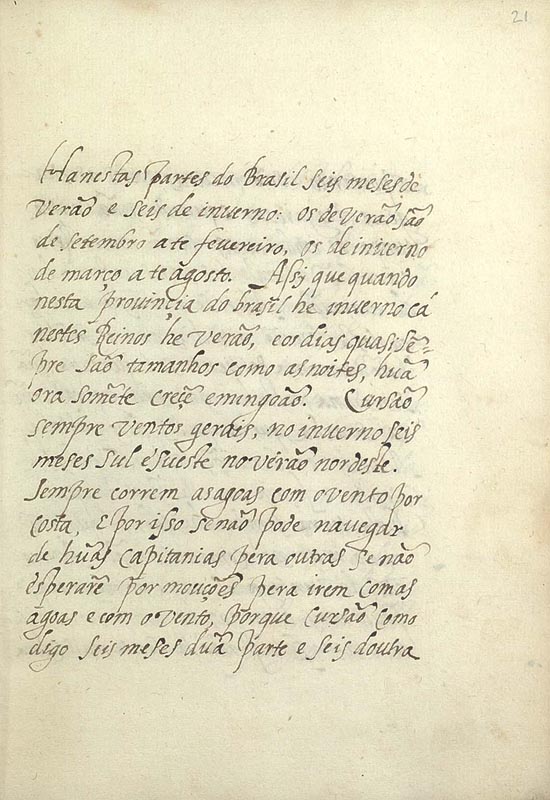 21
Ha nestas partes do Brasil seis meses de
verão e seis de inverno: os de verão são
de setembro ate fevereiro, os de inverno
de março ate agosto. Assy que quando
nesta provincia do brasil he inverno cá
nestes Reinos he verão, e os dias quasi sẽ-
pre são tamanhos como as noites, huã
ora somẽte creçẽ e mingoão. Cursão
sempre ventos gerais, no inverno seis
meses sul e sueste no verão nordeste.
Sempre correm as agoas com o vento por
costa, E por isso se não pode navegar
de huãs Capitanias pera outras se não
esperarẽ por mouções pera irem com as
agoas e com o vento, porque cursão como
digo seis meses duã parte e seis doutra